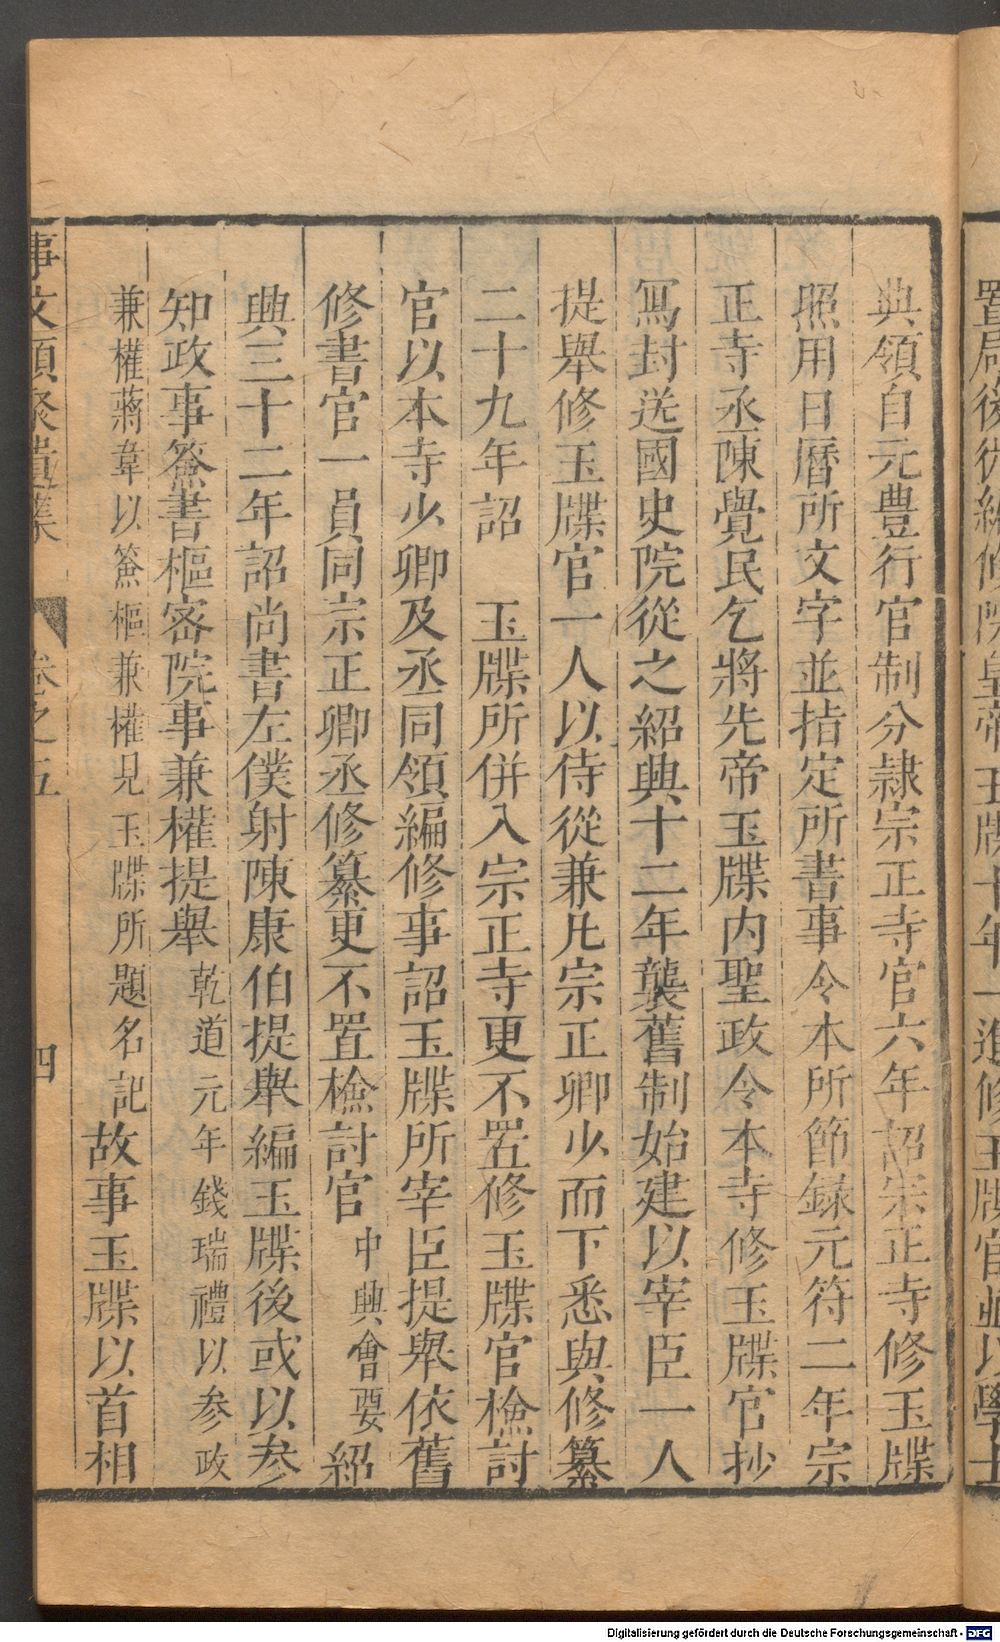 典領自元豊行官制分隷宗正寺官六年詔宗正寺修玉牒
照用日曆所文字並指定所書事令本所節録元符二年宗
正寺丞陳覺民乞將先帝玉牒内聖政令本寺修玉牒官抄
冩封送國史院從之紹興十二年襲舊制始建以宰臣一人
提舉修玉牒官一人以侍從兼凡宗正卿少而下悉與修纂
二十九年詔　玉牒所併入宗正寺更不置修玉牒官檢討
官以本寺少卿及丞同領編修事詔玉牒所宰臣提舉依舊
修書官一員同宗正卿丞修纂更不置檢討官中興會要紹
興三十二年詔尚書左僕射陳康伯提舉編玉牒後或以参
知政事簽書樞密院事兼權提舉乾道元年錢瑞禮以参政
兼權蔣韋以簽樞兼權見玉牒所題名記故事玉牒以首相
事文類聚遺集　卷之五　四
Digitalisierung gefördert durch die Deutsche Forschungsgemeinschaft - DFG